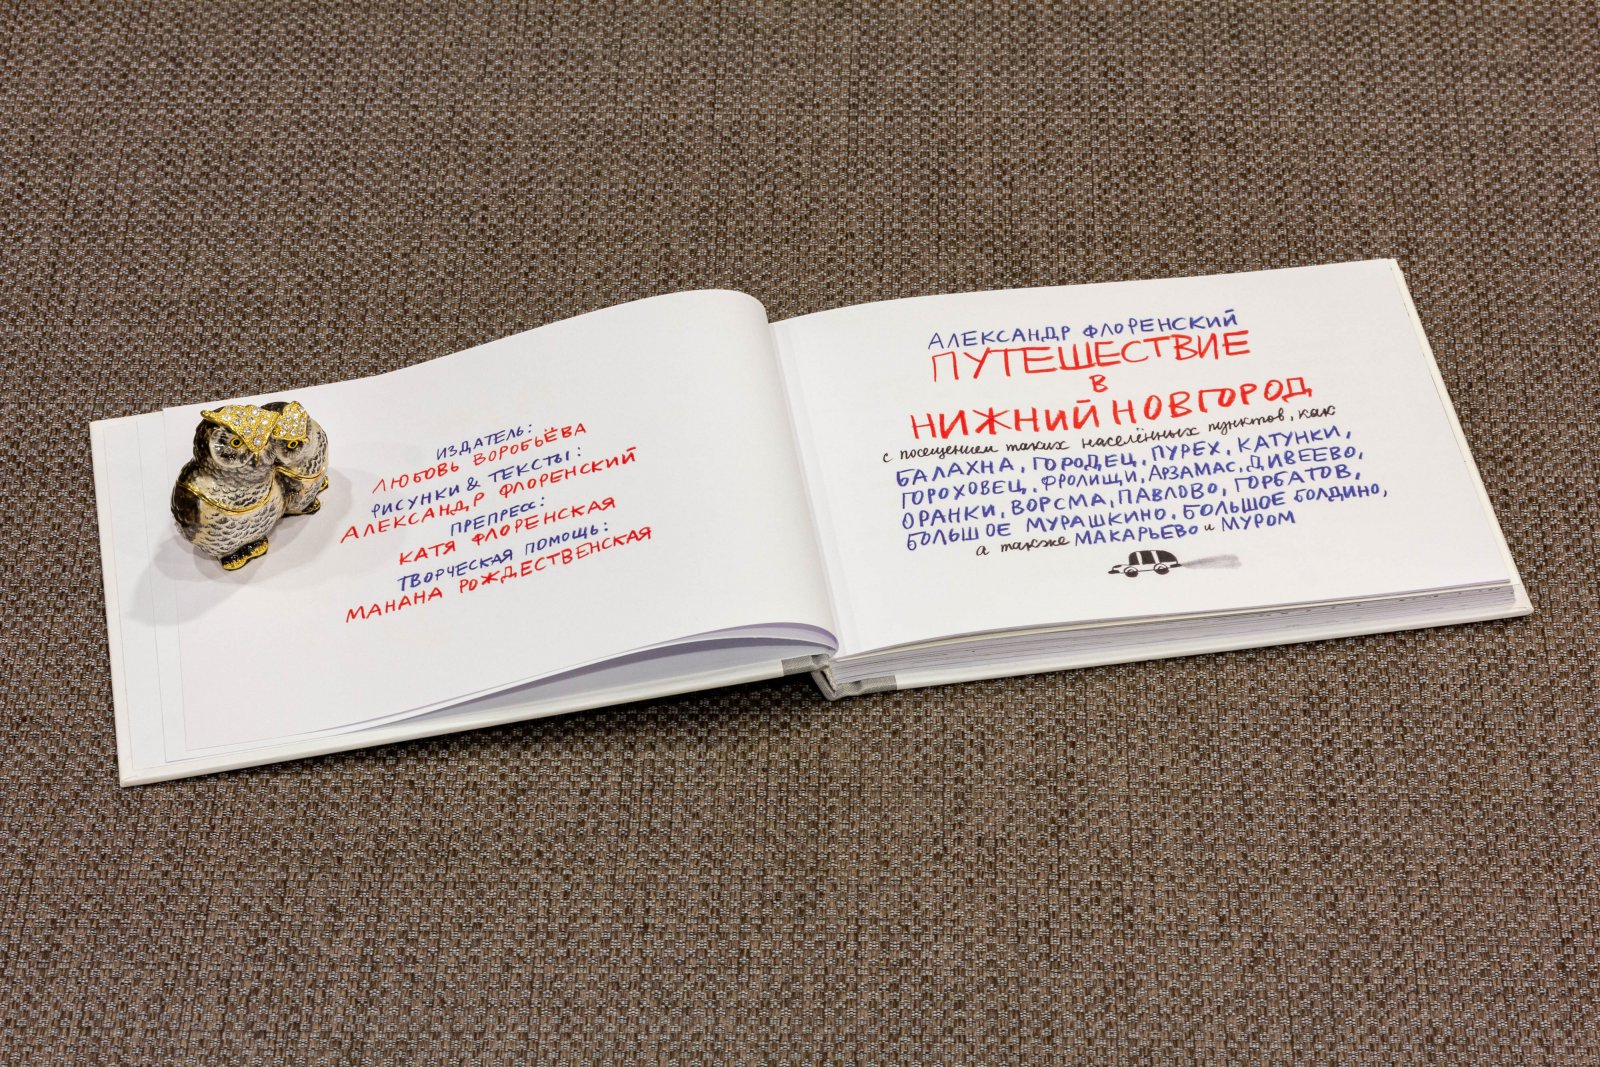 ИЗДАТЕЛЬ:
ЛЮБОВЬ ВОРОБЬЁВА
РИСУНКИ & ТЕКСТЫ:
АЛЕКСАНДР ФЛОРЕНСКИЙ
ПРЕПРЕСС:
КАТЯ ФЛОРЕНСКАЯ
ТВОРЧЕСКАЯ ПОМОЩЬ:
МАНАНА РОЖДЕСТВЕНСКАЯ
АЛЕКСАНДР ФЛОРЕНСКИЙ
ПУТЕШЕСТВИЕ
В
НИЖНИЙ НОВГОРОД
с посещением таких населённых пунктов, как
БАЛАХНА, ГОРОДЕЦ, ПУРЕХ, КАТУНКИ,
ГОРОХОВЕЦ, ФРОЛИЩИ, АРЗАМАС, ДИВЕЕВО,
ОРАНКИ, ВОРСМА, ПАВЛОВО, ГОРБАТОВ,
БОЛЬШОЕ МУРАШКИНО, БОЛЬШОЕ БОЛДИНО,
а также МАКАРЬЕВО и МУРОМ